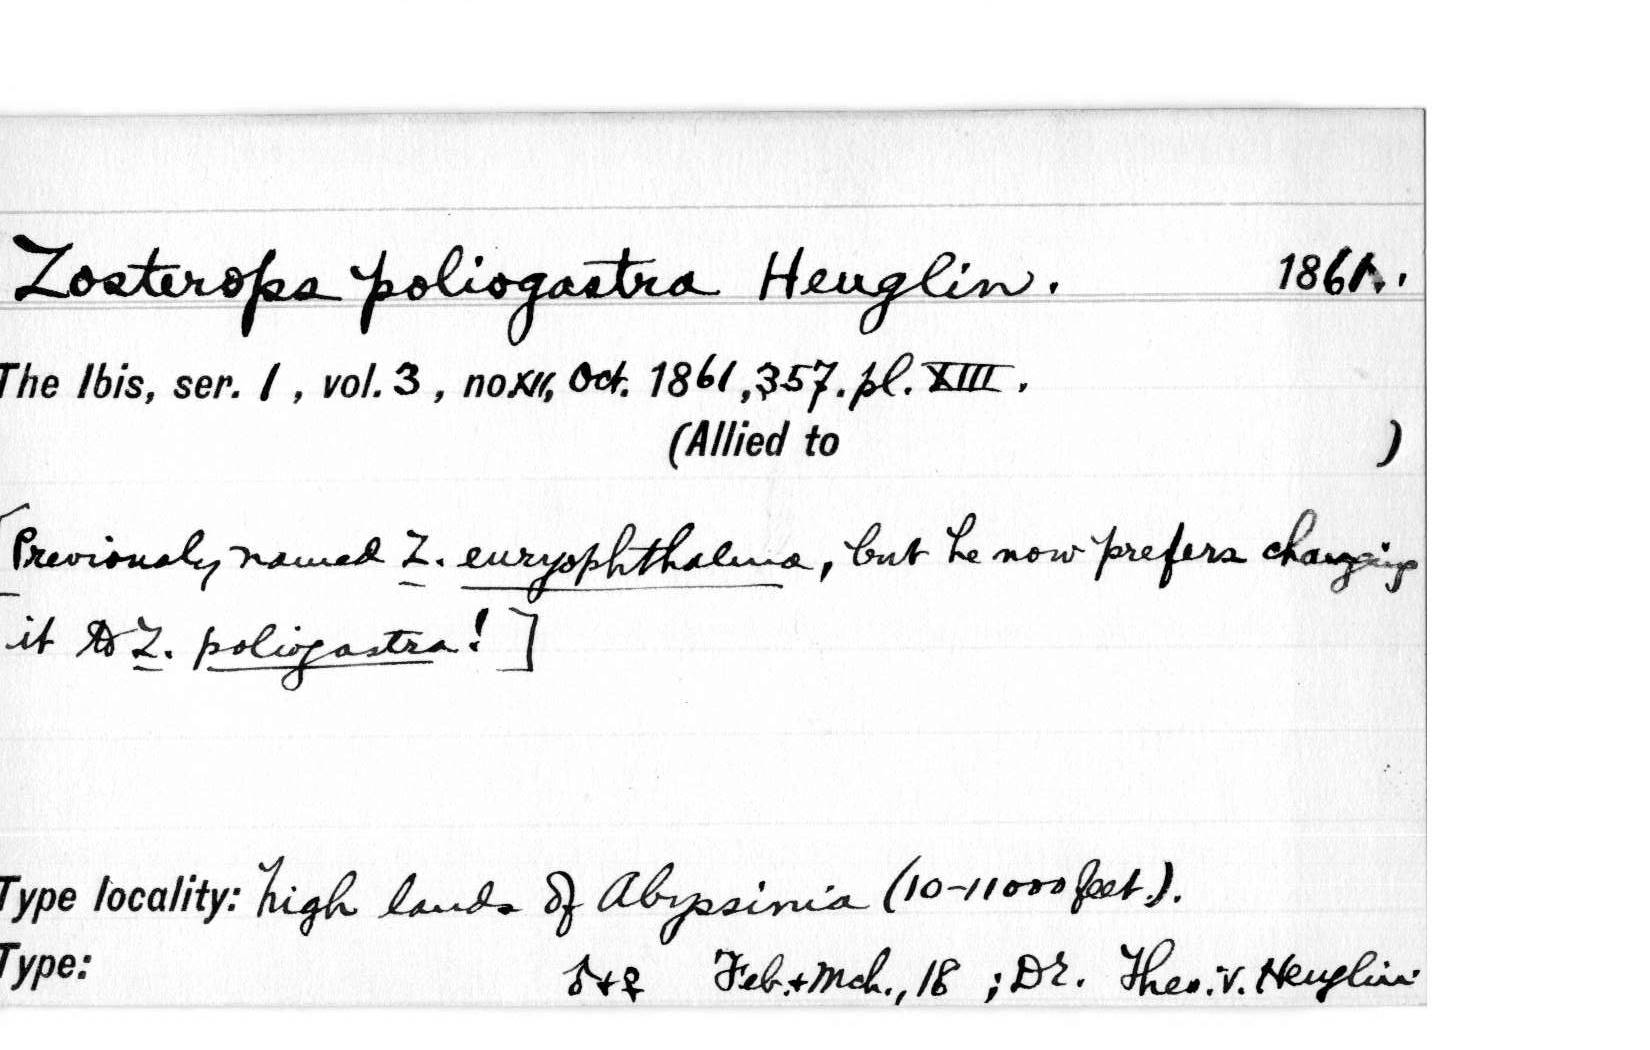 Zosterops poliogastra Heuglin. 1861.
The Ibis, ser. 1, vol. 3, no. XII, Oct. 1861, 357. pl. XIII.
(Allied to )
[Previously named Z. euryophthalma, but he now prefers changing
it to Z. poliogastra! ]
Type locality: high lands of Abyssinia (10-11000 feet.).
Type: ♂ + ♀ Feb. + Mch., 18 ; Dr. Theo. v. Heuglin